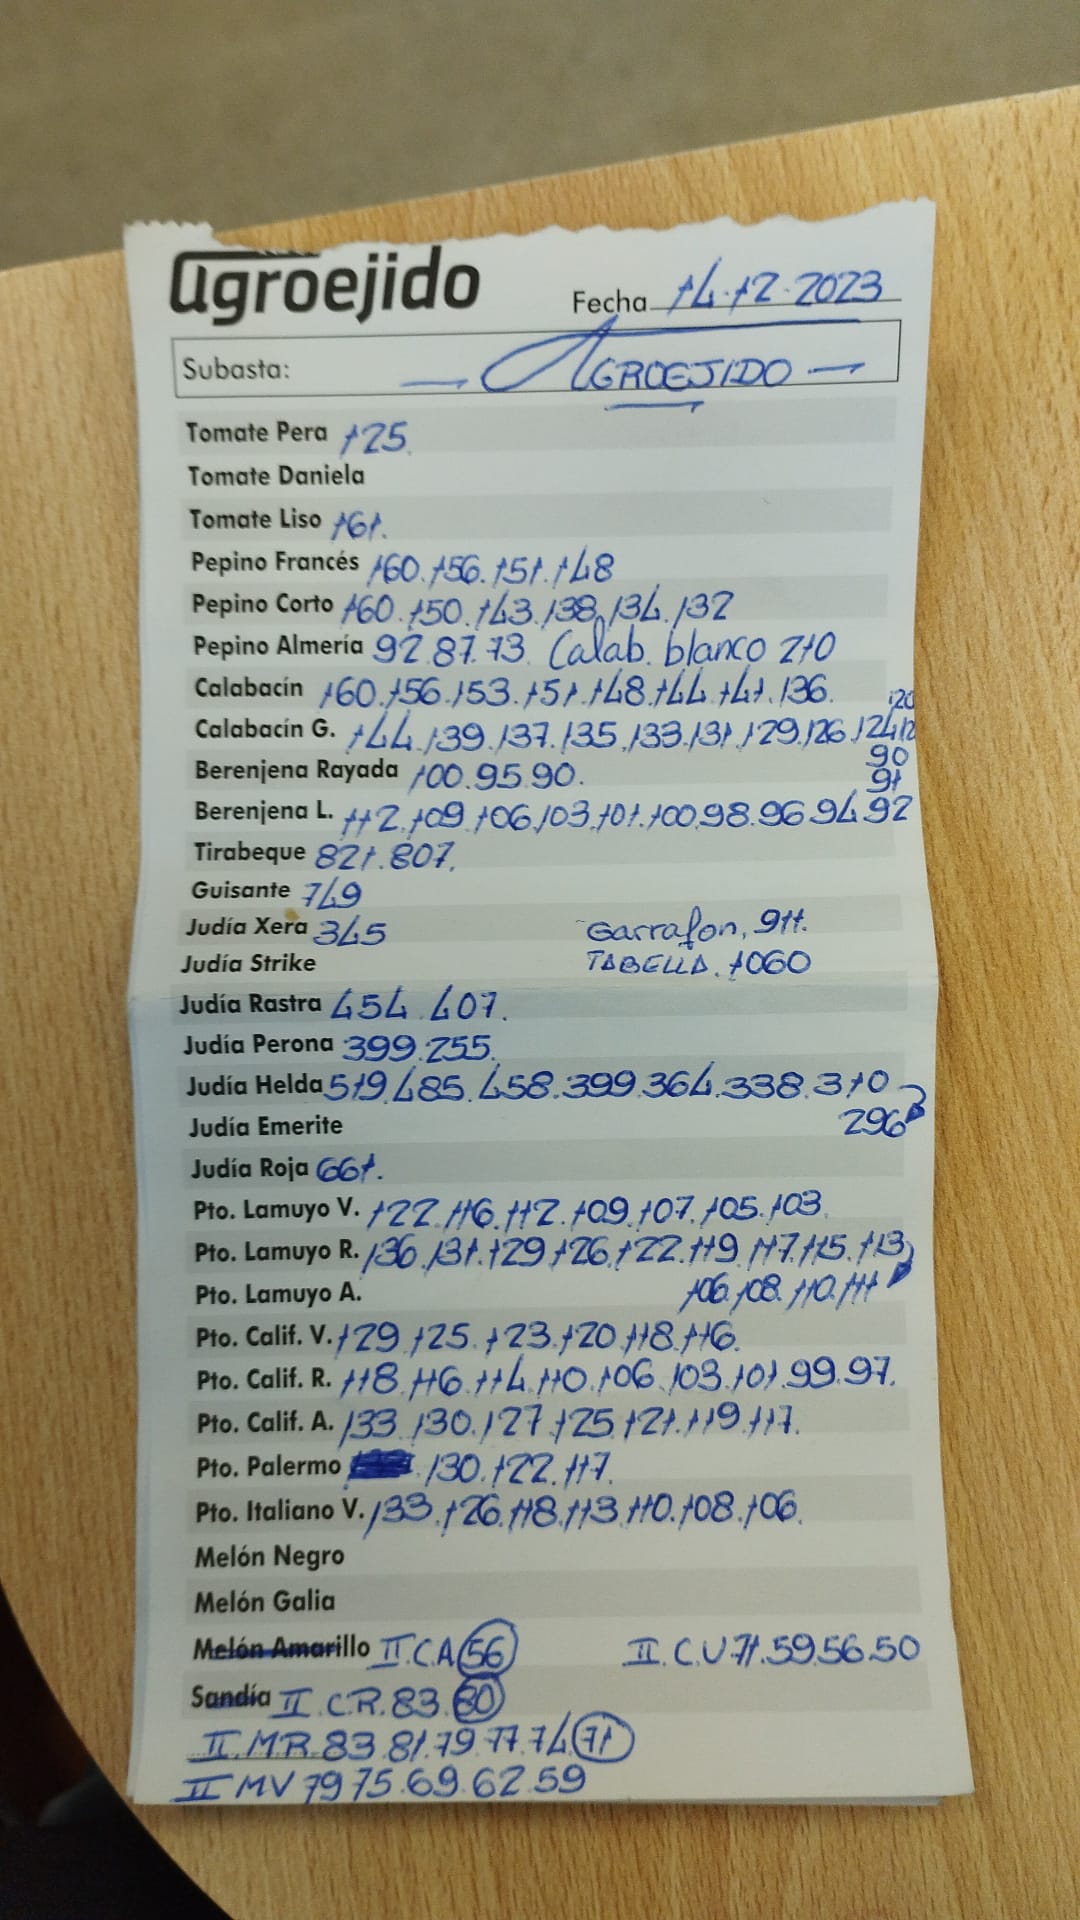 agroejido
Fecha 14.12.2023
Subasta: — AGROEJIDO —
Tomate Pera 125.
Tomate Daniela
Tomate Liso 161.
Pepino Francés 160.156.151.148
Pepino Corto 160.150.143.138.134.132
Pepino Almería 92.87.73. Calab. blanco 210
Calabacín 160.156.153.151.148.144.141.136.
120
Calabacín G. 144.139.137.135.133.131.129.126.124.12
90
Berenjena Rayada 100.95.90.
91
Berenjena L. 112.109.106.103.101.100.98.96.94.92
Tirabeque 821.807.
Guisante 749
Judía Xera 345 Garrafon, 911.
Judía Strike TABELLA. 1060
Judía Rastra 454.407.
Judía Perona 399.255.
Judía Helda 519.485.458.399.364.338.310
Judía Emerite 296
Judía Roja 661.
Pto. Lamuyo V. 122.116.112.109.107.105.103.
Pto. Lamuyo R. 136.131.129.126.122.119.117.115.113
Pto. Lamuyo A. 106.108.110.111
Pto. Calif. V. 129.125.123.120.118.116.
Pto. Calif. R. 118.116.114.110.106.103.101.99.97.
Pto. Calif. A. 133.130.127.125.121.119.117.
Pto. Palermo 130.122.117.
Pto. Italiano V. 133.126.118.113.110.108.106.
Melón Negro
Melón Galia
Melón Amarillo II.C.A 56 II.C.V 71.59.56.50
Sandía II C.R. 83.80
II.MR.83.81.79.77.74.71
II MV 79.75.69.62.59